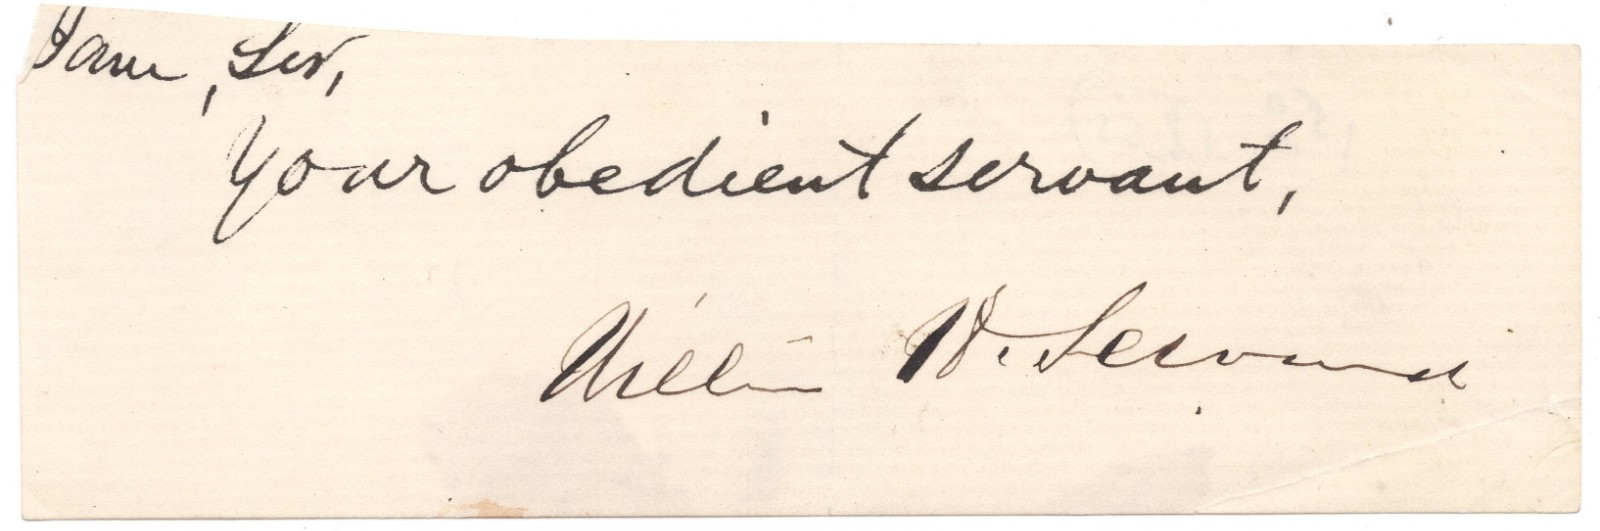 I am, Sir,
Your obedient servant,
William